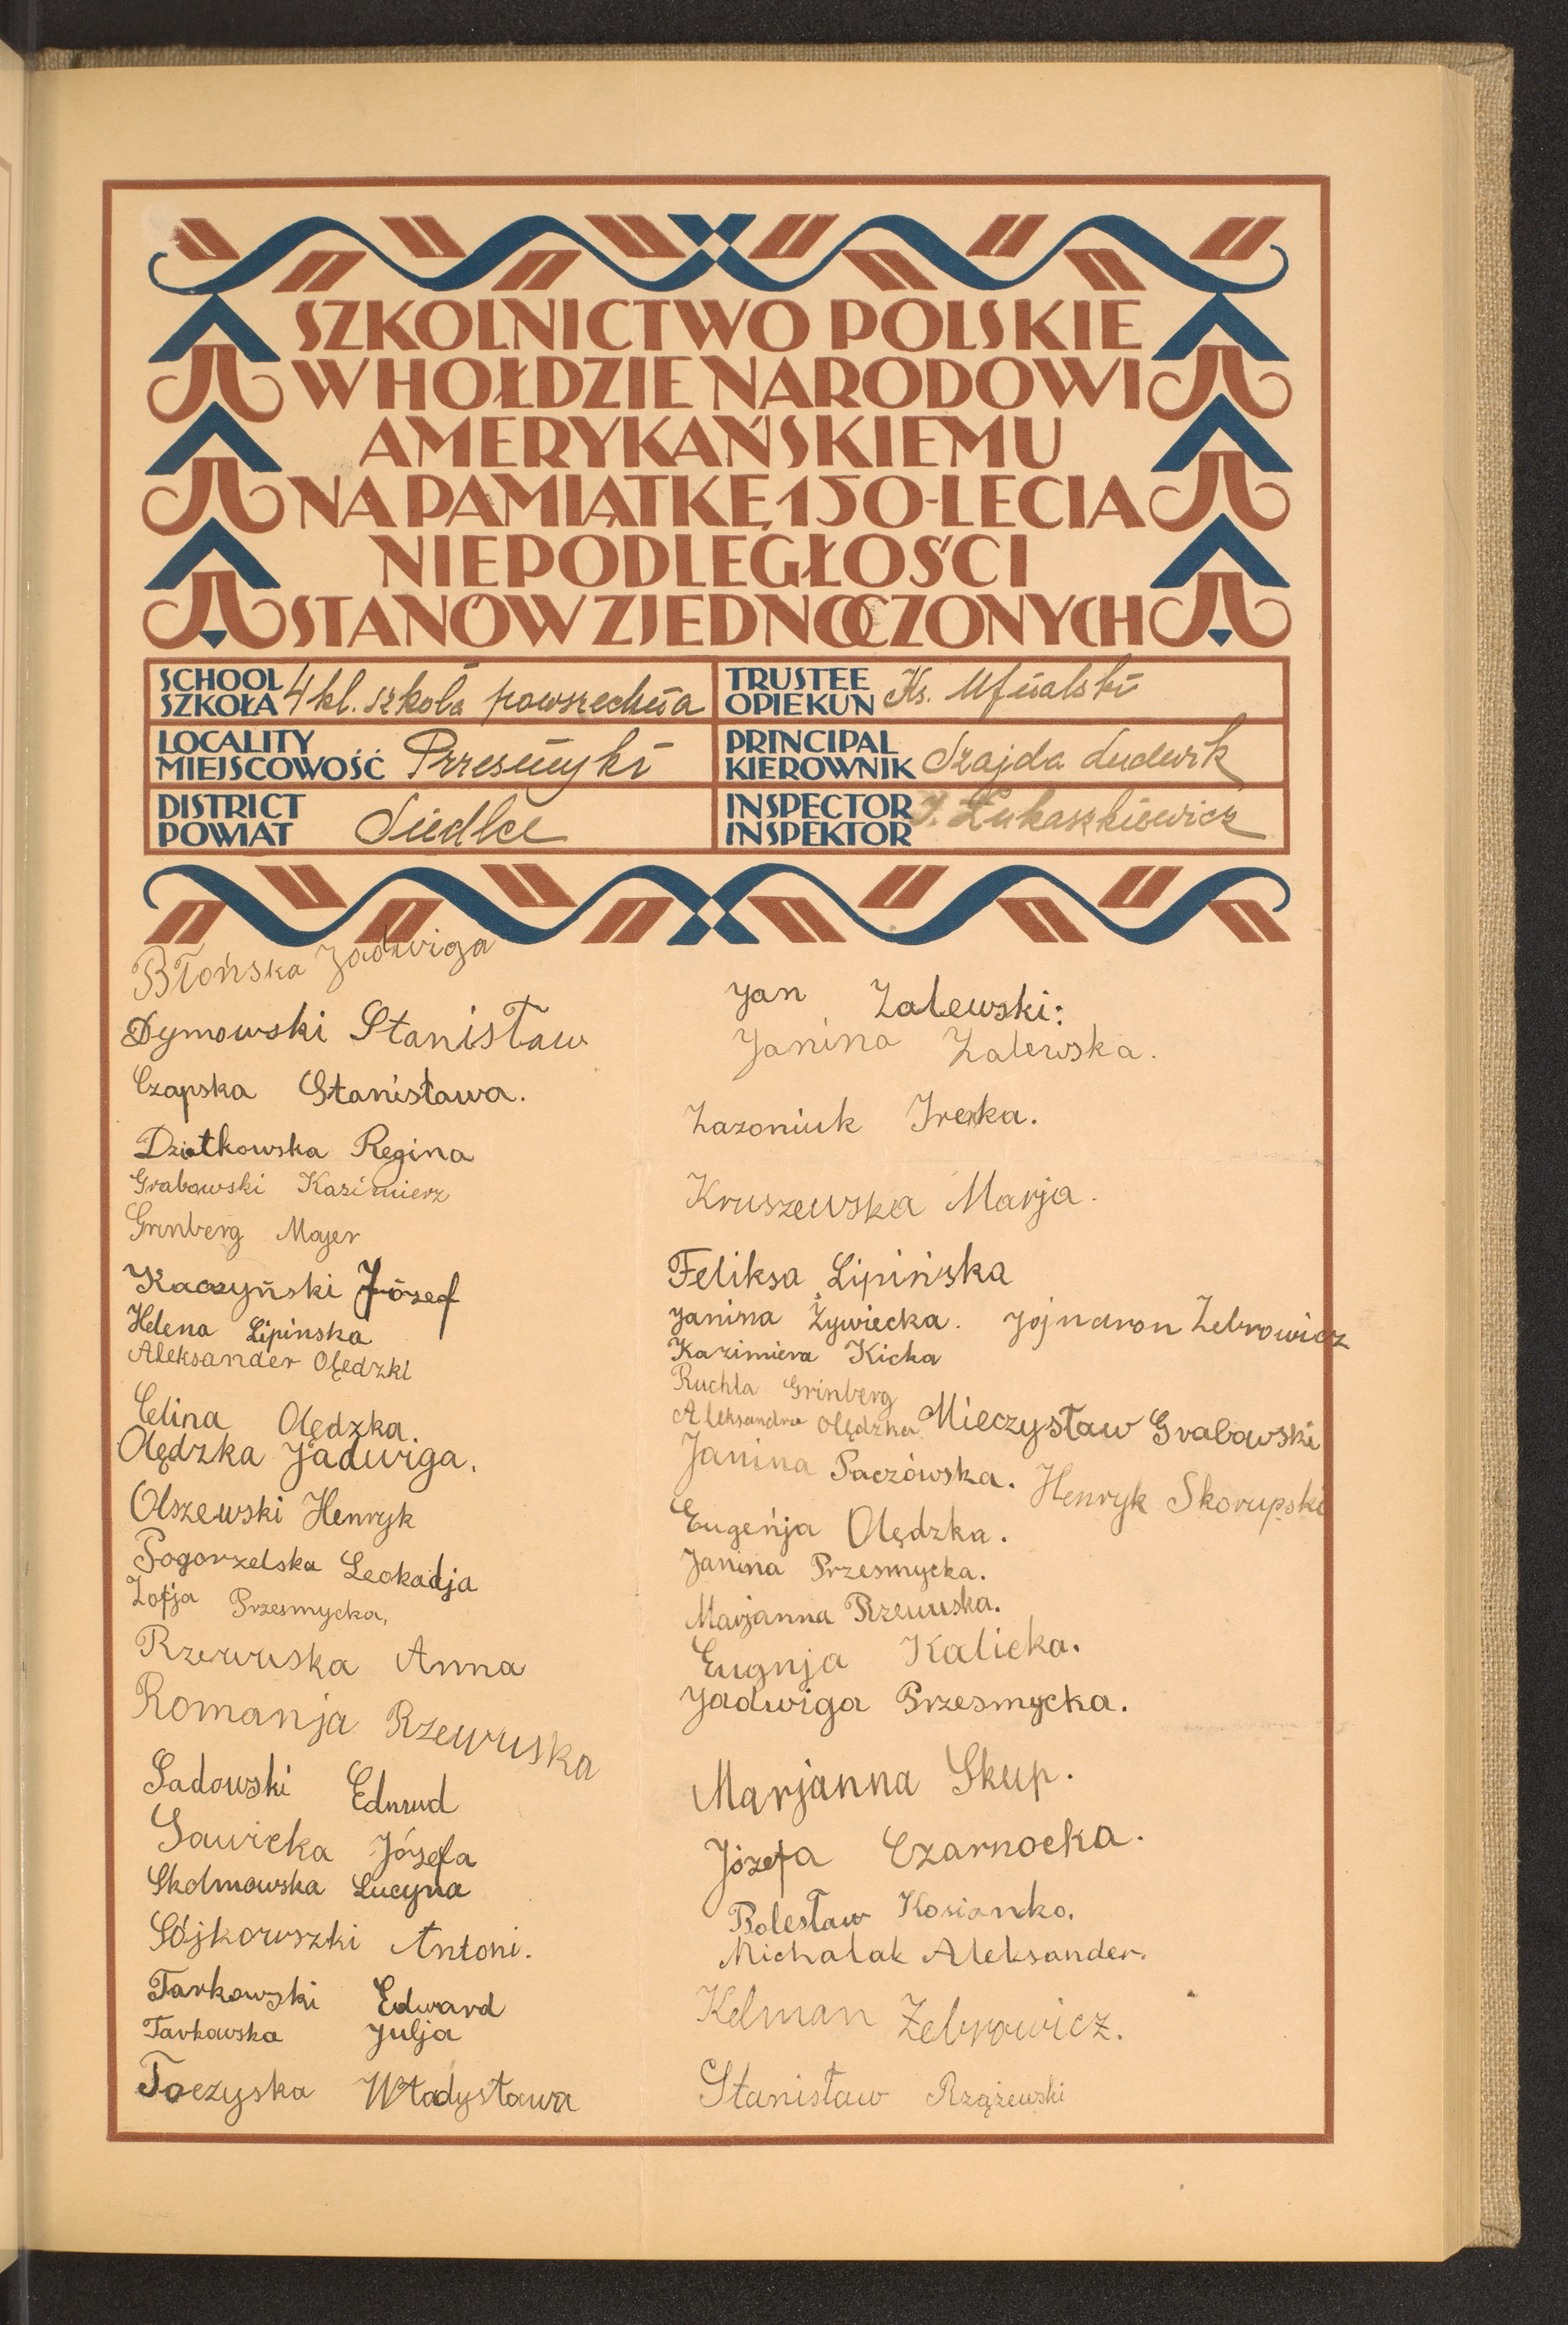 SZKOLNICTWO POLSKIE
W HOŁDZIE NARODOWI
AMERYKAŃSKIEMU
NA PAMIĄTKĘ 150-LECIA
NIEPODLEGŁOŚCI
STANÓW ZJEDNOCZONYCH
SCHOOL
SZKOŁA 4 kl. szkoła powszechna
TRUSTEE
OPIEKUN Ks.
LOCALITY
MIEJSCOWOŚĆ Przesmyki
PRINCIPAL
KIEROWNIK Szajda Ludwik
DISTRICT
POWIAT Siedlce
INSPECTOR
INSPEKTOR J. Łukaszkiewicz
Błońska Jadwiga
Dymowski Stanisław
Czapska Stanisława.
Dziatkowska Regina
Grabowski Kazimierz
Grinberg Majer
Kaczyński Józef
Helena Lipinska
Aleksander Olędzki
Celina Olędzka.
Olędzka Jadwiga.
Olszewski Henryk
Pogorzelska Leokadja
Zofja Przesmycka,
Rzewuska Anna
Romanja Rzewuska
Sadowski
Sawicka Józefa
Skolmowska Lucyna
Sójkowszki Antoni.
Tarkowski Edward
Tarkowska Julja
Toczyska Władysława
Jan Zalewski:
Janina Zalewska.
Zazoniuk Irenka.
Kruszewska Marja.
Feliksa Lipińska
Janina Żywiecka. Zebrowicz
Kazimiera Kicka
Ruchla Grinberg
Aleksandra Olędzka Mieczysław Grabowski
Janina Paczówska. Henryk Skorupski
Eugeńja Olędzka.
Janina Przesmycka.
Marjanna Rzewuska.
Eugnja Kalicka.
Jadwiga Przesmycka.
Marjanna Skup.
Józefa Czarnocka.
Bolesław Kosianko.
Michalak Aleksander.
Kelman Zebrowicz.
Stanisław Rzążewski